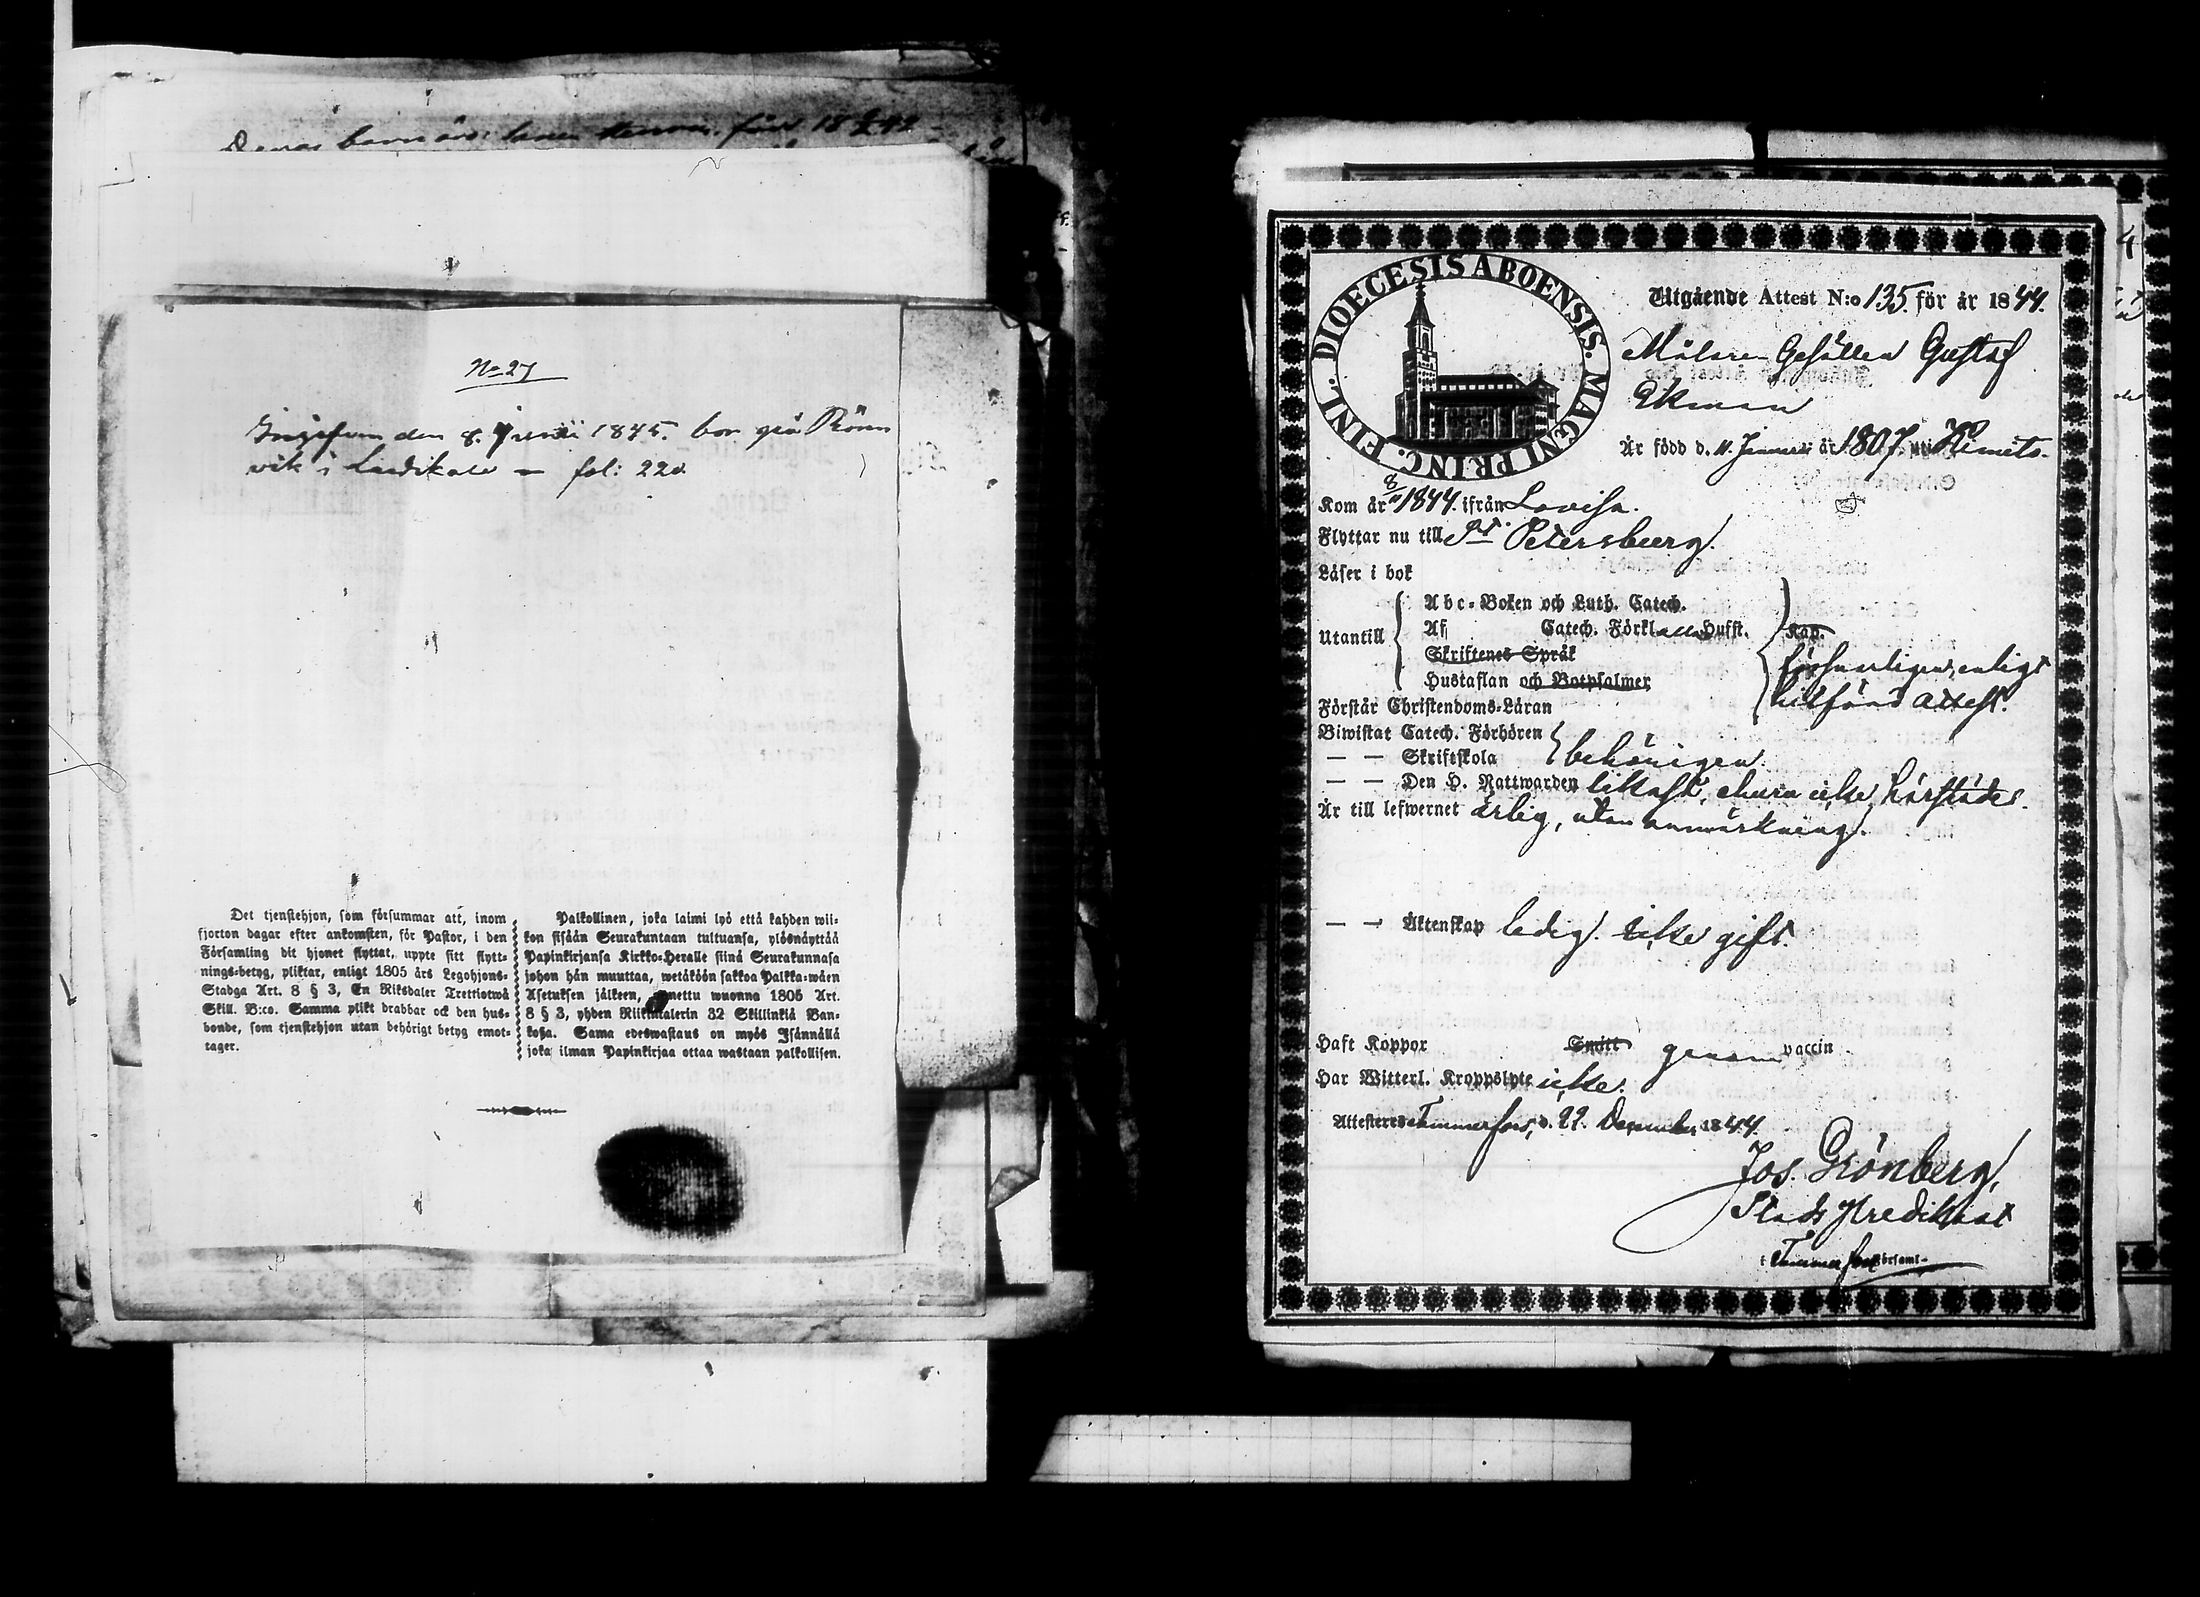 barn
född 18
No 27
den 8. Junii 1845. bor på Rönn
vik i Lardikala — fol: 220
Det tjenstehjon, som försummar att, inom
fjorton dagar efter ankomsten, för Pastor, i den
Församling dit hjonet flyttat, uppte sitt flytt-
nings-betyg, pliktar, enligt 1805 års Legohjons-
Stadga Art. 8 § 3, En Riksdaler Trettiotwå
Skill. B:co. Samma plikt drabbar ock den hus-
bonde, som tjenstehjon utan behörigt betyg emot-
tager.
Palkollinen, joka laimi lyö että kahden wii-
kon sisään Seurakuntaan tultuansa, ylösnäyttää
Papinkirjansa Kirkko-Heralle siinä Seurakunnasa
johon hän muuttaa, wetäköön sakkoa Palkka-wäen
Asetuksen jälkeen, annettu wuonna 1805 Art.
8 § 3, yhden Riikintalerin 32 Skillinkiä Ban-
koßa. Sama edeswastaus on myös Isännällä
joka ilman Papinkirjaa ottaa wastaan palkollisen.
DIOECESIS ABOENSIS. MAGNI PRINC. FINL.
Utgående Attest N:o 135. för år 1844.
Målare Gesällen Gustaf
Ekman
Är född d. 11. Januari år 1807. uti Kimito.
Kom år 8/11 1844. ifrån Lovisa.
Flyttar nu till St. Petersburg.
Läser i bok
Utantill
Abc-Boken och Luth. Catech.
Af Catech. Förkl. alla Hufst.
Kap.
Skriftenes Språk
försvarligen, enligt
Hustaflan och Botpsalmer
hitförd attest.
Förstår Christendoms-Läran
Biwistat Catech. Förhören
— — Skriftskola
behörigen.
— — Den H. Nattwarden likaså, ehuru icke härstädes.
Är till lefwernet ärlig, utan anmärkning.
— — Äktenskap ledig. icke gift.
Haft Koppor Smitt genom vaccin
Har Witterl. Kroppslyte icke.
Attesteres Tammerfors, d. 22. December 1844.
Jos. Grönberg,
Stads Predikant
i Tammerfors församl-